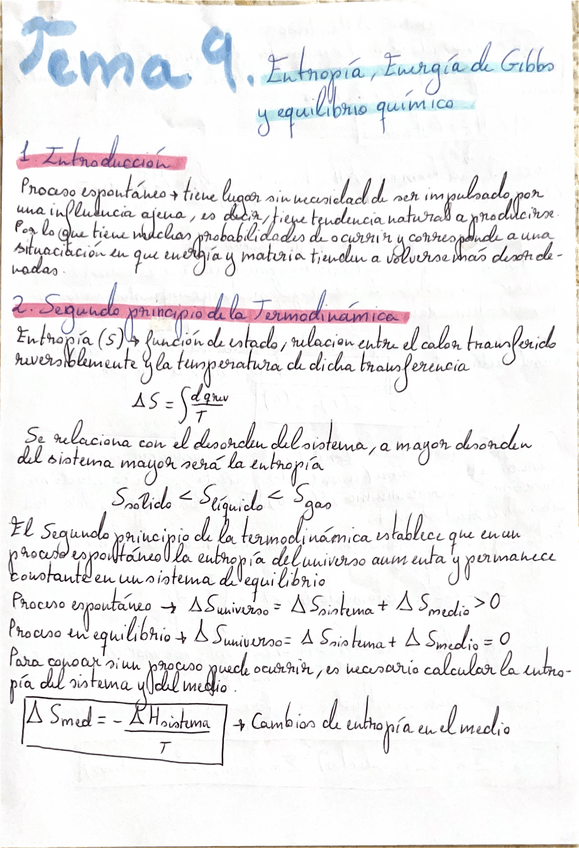 Tema 9. Entropía, Energía de Gibbs
y equilibrio químico
1. Introducción
Proceso espontáneo → tiene lugar sin necesidad de ser impulsado por
una influencia ajena, es decir, tiene tendencia natural a producirse.
Por lo que tiene muchas probabilidades de ocurrir y corresponde a una
situaciación en que energía y materia tienden a volverse más desorde-
nadas.
2. Segundo principio de la Termodinámica
Entropía (S) → función de estado, relacion entre el calor transferido
reversiblemente y la temperatura de dicha transferencia
ΔS = ∫ dqrev / T
Se relaciona con el desorden del sistema, a mayor desorden
del sistema mayor será la entropía
Ssolido < Slíquido < Sgas
El Segundo principio de la termodinámica establece que en un
proceso espontáneo la entropía del universo aumenta y permanece
constante en un sistema de equilibrio
Proceso espontáneo → ΔSuniverso = ΔSsistema + ΔSmedio > 0
Proceso en equilibrio → ΔSuniverso = ΔSsistema + ΔSmedio = 0
Para conocer si un proceso puede ocurrir, es necesario calcular la entro-
pía del sistema y del medio.
ΔSmed = - ΔHsistema / T → Cambios de entropía en el medio